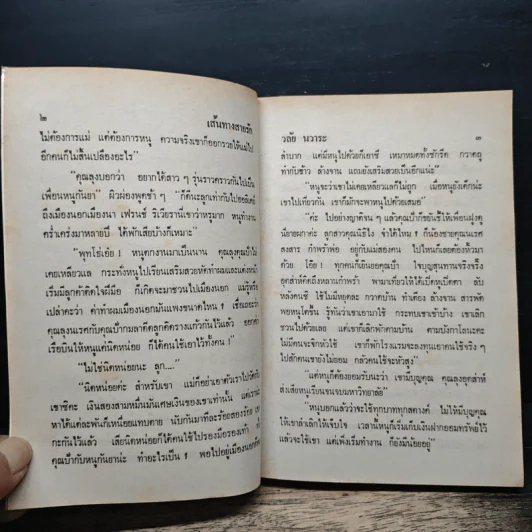 ๒
เส้นทางสายรัก
ไม่ต้องการแม่ แต่ต้องการหนู ความจริงเขาก็ออกรวยให้แม่ไป
อีกคนก็ไม่สิ้นเปลืองอะไร"
"คุณลุงบอกว่า อยากได้สาว ๆ รุ่นราวคราวกันไปเป็น
เพื่อนหนูกันยา" ผิวผ่องพูดช้า ๆ
ถึงเมืองนอกเมืองนา เฟรนช์ ริเวียร่าเขาว่าหรูมาก หนูทำงาน
คร่ำเคร่งมาหลายปี ได้พักเสียบ้างก็เหมาะ"
"พุทโธ่เอ๋ย ! หนูตกงานมาเป็นนาน คุณลุงคุณป้าไม่
เคยเหลียวแล กระทั่งหนูไปเรียนเสริมสวยหัดทำผมและแต่งหน้า
เริ่มมีลูกค้าติดใจฝีมือ ก็เกิดจะมาชวนไปเมืองนอก แม่รู้หรือ
เปล่าคะว่า ค่าทำผมเมืองนอกมันแพงขนาดไหน
คุณลุงแนรคกับคุณป้าก
เรือบินให้หนูแค่นิดหน่อย ก็ได้คนใช้เอาไว้ทั้งคน !"
"ไม่ใช่นิดหน่อยนะ ลูก...."
"นิดหน่อยค่ะ สำหรับเขา แม่ก็อย่าเอาตัวเราไปวัดกับ
เขาซิคะ เงินสองสามหมื่นมันเศษเงินของเขาเท่านั้น แต่เราจะ
หาได้แต่ละพันก็เหนื่อยแทบตาย นับกันมาทีละร้อยสองร้อย
กะกันไว้แล้ว เสียนิดหน่อยก็ได้คนใช้ไปรองมือรองเท้า
คุณป้ากับหนูกันยาน่ะ ทำอะไรเป็น ! พอไปอยู่เมืองนอก
วลัย นวาระ
๓
ลำบาก แต่มีหนูไปด้วยก็เอาซี เหมาหมดทั้งซักรีด กวาดถู
ทำกับข้าว ล้างจาน แถมยังเสริมสวยเป็นอีกแน่ะ"
"หนูจะว่าเขาไม่เคยเหลียวแลก็ไม่ถูก เมื่อหนูยังเด็กน่ะ
เขาไปเที่ยวไกน เขาก็มักจะพาหนูไปด้วยเสมอ"
"ค่ะ ไปอย่างญาติจน ๆ แล้วคุณป้าก็ขยันรี้ให้เพื่อนฝูงดู
นี่อายผกาค่ะ ลูกสาวคุณนิธิไง จำได้ไหม ! ก็น้องชายคุณแนรค
สงสาร กำพร้าพ่อ อยู่กับแม่สองคน ไปไหนก็เลยต้องหิ้วมา
ด้วย โอ๊ย ! ทุกคนก็เยินยอคุณป้า ใจบุญสุนทานจริงจริ๊ง
อุตส่าห์คิดถึงหลานกำพร้า พามาเที่ยวให้ได้เปิดหูเปิดตา ลับ
หลังคนซี ใช้ไม่มีหยุดละ กวาดบ้าน ทำเตียง ล้างจาน สารพัด
พอหนูโตขึ้น รู้ทันว่าเขาเอามาใช้ กระทบเขาเข้าบ้าง เขาเลิก
ชวนไปด้วยเลย แต่เขาเลิกพักด้ามบ้าน ตามบังกาโลนะคะ
ไม่มีคนจะจิกหัวใช้ เขาก็พักโรงแรมจะลงทุนเอาคนใช้จริง ๆ
ไปสักคนเขายังไม่ยอม กลัวคนใช้จะหัวสูง"
"แต่หนูก็ต้องยอมรับนะว่า เขามีบุญคุณ คุณลุงอุตส่าห์
ส่งเสียหนูเรียนจนจบมหาวิทยาลัย"
"หนูบอกแล้วว่าจะใช้ทุกบาททุกสตางค์ ไม่ให้มีบุญคุณ
ให้เขาลำเลิกให้เจ็บใจ เวลานี้หนูก็เริ่มเก็บเงินฝากออมทรัพย์ไว้
แล้วจะใช้เขา แต่เพิ่งเริ่มทำงาน ก็ยังมีน้อยอยู่"